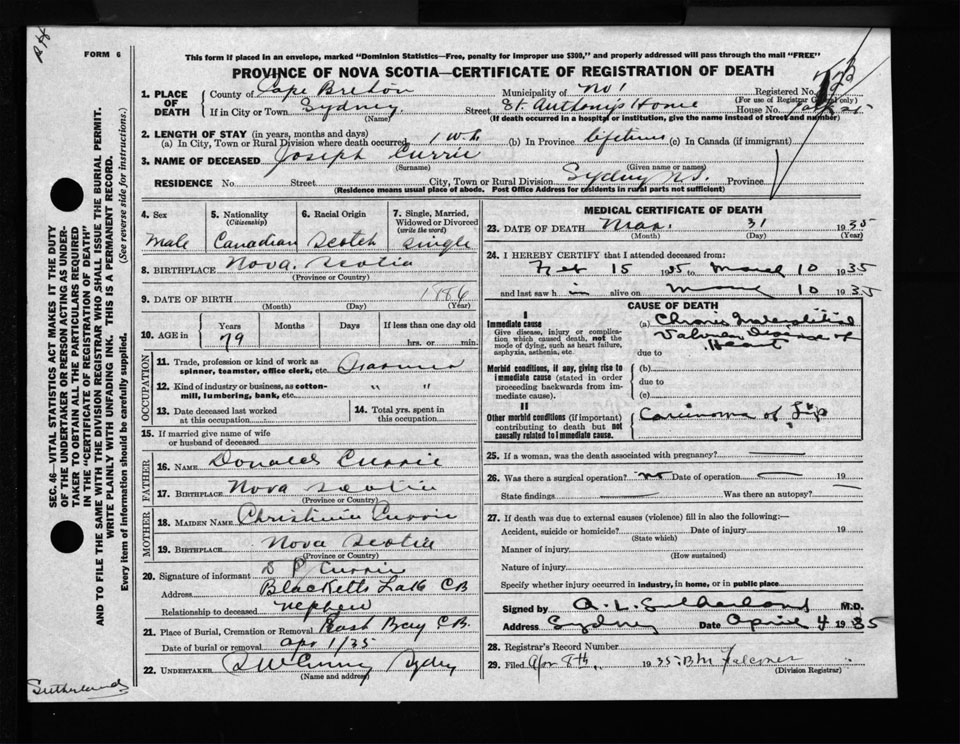 FORM 6
This form if placed in an envelope, marked "Dominion Statistics—Free, penalty for improper use $300," and properly addressed will pass through the mail "FREE"
PROVINCE OF NOVA SCOTIA—CERTIFICATE OF REGISTRATION OF DEATH
1. PLACE OF DEATH
County of Cape Breton Municipality of No 1 Registered No.
(For use of Registrar General only)
If in City or Town Sydney Street St. Anthony's Home House No.
(Name) (If death occurred in a hospital or institution, give the name instead of street and number)
2. LENGTH OF STAY (in years, months and days)
(a) In City, Town or Rural Division where death occurred 1 wk (b) In Province lifetime (c) In Canada (if immigrant)
3. NAME OF DECEASED Joseph Currie
(Surname) (Given name or names)
RESIDENCE No. Street City, Town or Rural Division Sydney N.S. Province
(Residence means usual place of abode. Post Office Address for residents in rural parts not sufficient)
4. Sex 5. Nationality (Citizenship) 6. Racial Origin 7. Single, Married, Widowed or Divorced (write the word)
Male Canadian Scotch single
8. BIRTHPLACE Nova Scotia
(Province or Country)
9. DATE OF BIRTH 1886
(Month) (Day) (Year)
10. AGE in Years Months Days If less than one day old
79 hrs. or min.
OCCUPATION
11. Trade, profession or kind of work as spinner, teamster, office clerk, etc.
12. Kind of industry or business, as cotton-mill, lumbering, bank, etc. " "
13. Date deceased last worked at this occupation
14. Total yrs. spent in this occupation
15. If married give name of wife or husband of deceased
FATHER
16. NAME Donald Currie
17. BIRTHPLACE Nova Scotia
(Province or Country)
MOTHER
18. MAIDEN NAME Currie
19. BIRTHPLACE Nova Scotia
(Province or Country)
20. Signature of informant D P Currie
Address Blacketts Lake C.B
Relationship to deceased nephew
21. Place of Burial, Cremation or Removal East Bay C.B.
Date of burial or removal Apr 1/35
22. UNDERTAKER Sydney
(Name and address)
MEDICAL CERTIFICATE OF DEATH
23. DATE OF DEATH Mar. 31 1935
(Month) (Day) (Year)
24. I HEREBY CERTIFY that I attended deceased from:
Feb 15 1935 to March 10 1935
and last saw him alive on March 10 1935
CAUSE OF DEATH
I
Immediate cause
Give disease, injury or complication which caused death, not the mode of dying, such as heart failure, asphyxia, asthenia, etc.
(a) Chronic Interstitial
Valvular Disease of
Heart
due to
Morbid conditions, if any, giving rise to immediate cause (stated in order proceeding backwards from immediate cause).
(b)
due to
(c)
II
Other morbid conditions (if important) contributing to death but not causally related to immediate cause.
Carcinoma of Lip
25. If a woman, was the death associated with pregnancy?
26. Was there a surgical operation? no Date of operation 19
State findings Was there an autopsy?
27. If death was due to external causes (violence) fill in also the following:—
Accident, suicide or homicide? Date of injury 19
(State which)
Manner of injury
(How sustained)
Nature of injury
Specify whether injury occurred in industry, in home, or in public place
Signed by A. L. Sutherland M.D.
Address Sydney Date April 4 1935
28. Registrar's Record Number
29. Filed Apr 8th, 1935 B M Falconer
(Division Registrar)
SEC. 46—VITAL STATISTICS ACT MAKES IT THE DUTY
OF THE UNDERTAKER OR PERSON ACTING AS UNDER-
TAKER TO OBTAIN ALL THE PARTICULARS REQUIRED
IN THE "CERTIFICATE OF REGISTRATION OF DEATH"
AND TO FILE THE SAME WITH THE DIVISION REGISTRAR WHO SHALL ISSUE THE BURIAL PERMIT.
WRITE PLAINLY WITH UNFADING INK. THIS IS A PERMANENT RECORD.
Every item of information should be carefully supplied. (See reverse side for instructions.)
Sutherland